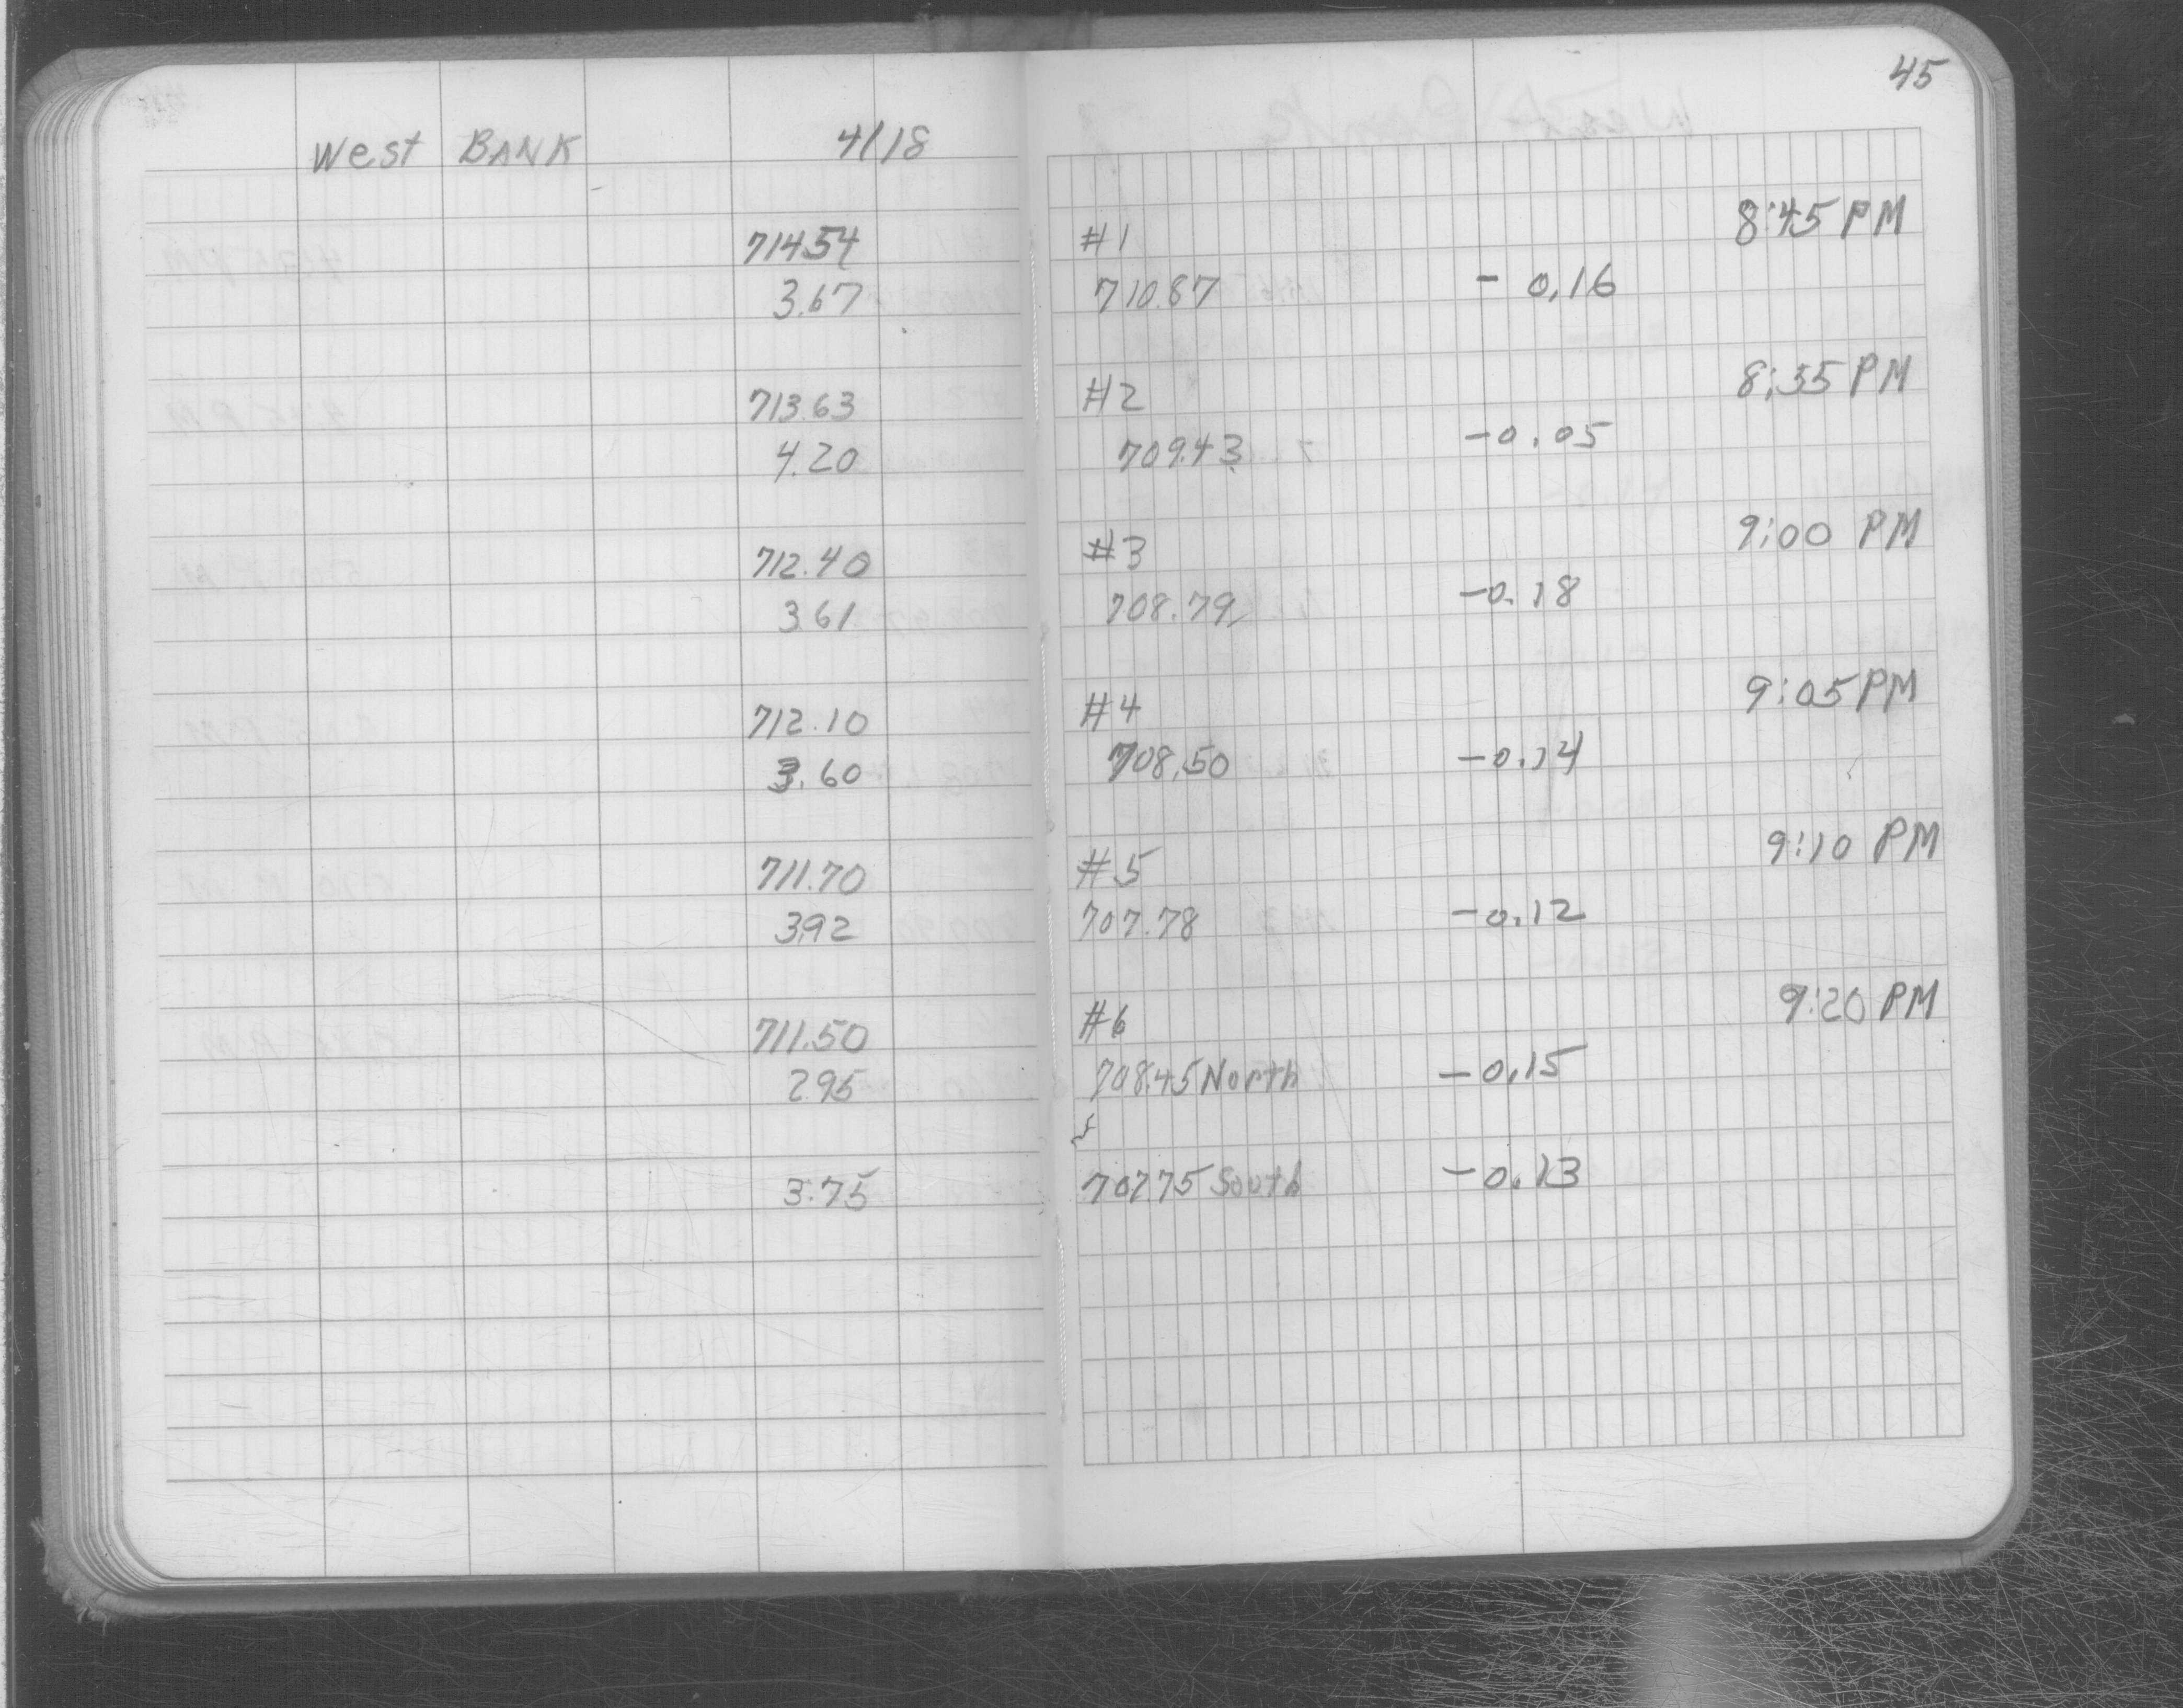 45
West BANK 4/18
8:45 PM
714.54 #1
3.67 710.87 - 0.16
8:55 PM
713.63 #2
4.20 709.43 -0.05
9:00 PM
712.40 #3
3.61 708.79 -0.18
9:05 PM
712.10 #4
3.60 708.50 -0.14
9:10 PM
711.70 #5
3.92 707.78 -0.12
9:20 PM
711.50 #6
2.95 708.45 North -0.15
3.75 707.75 South -0.13